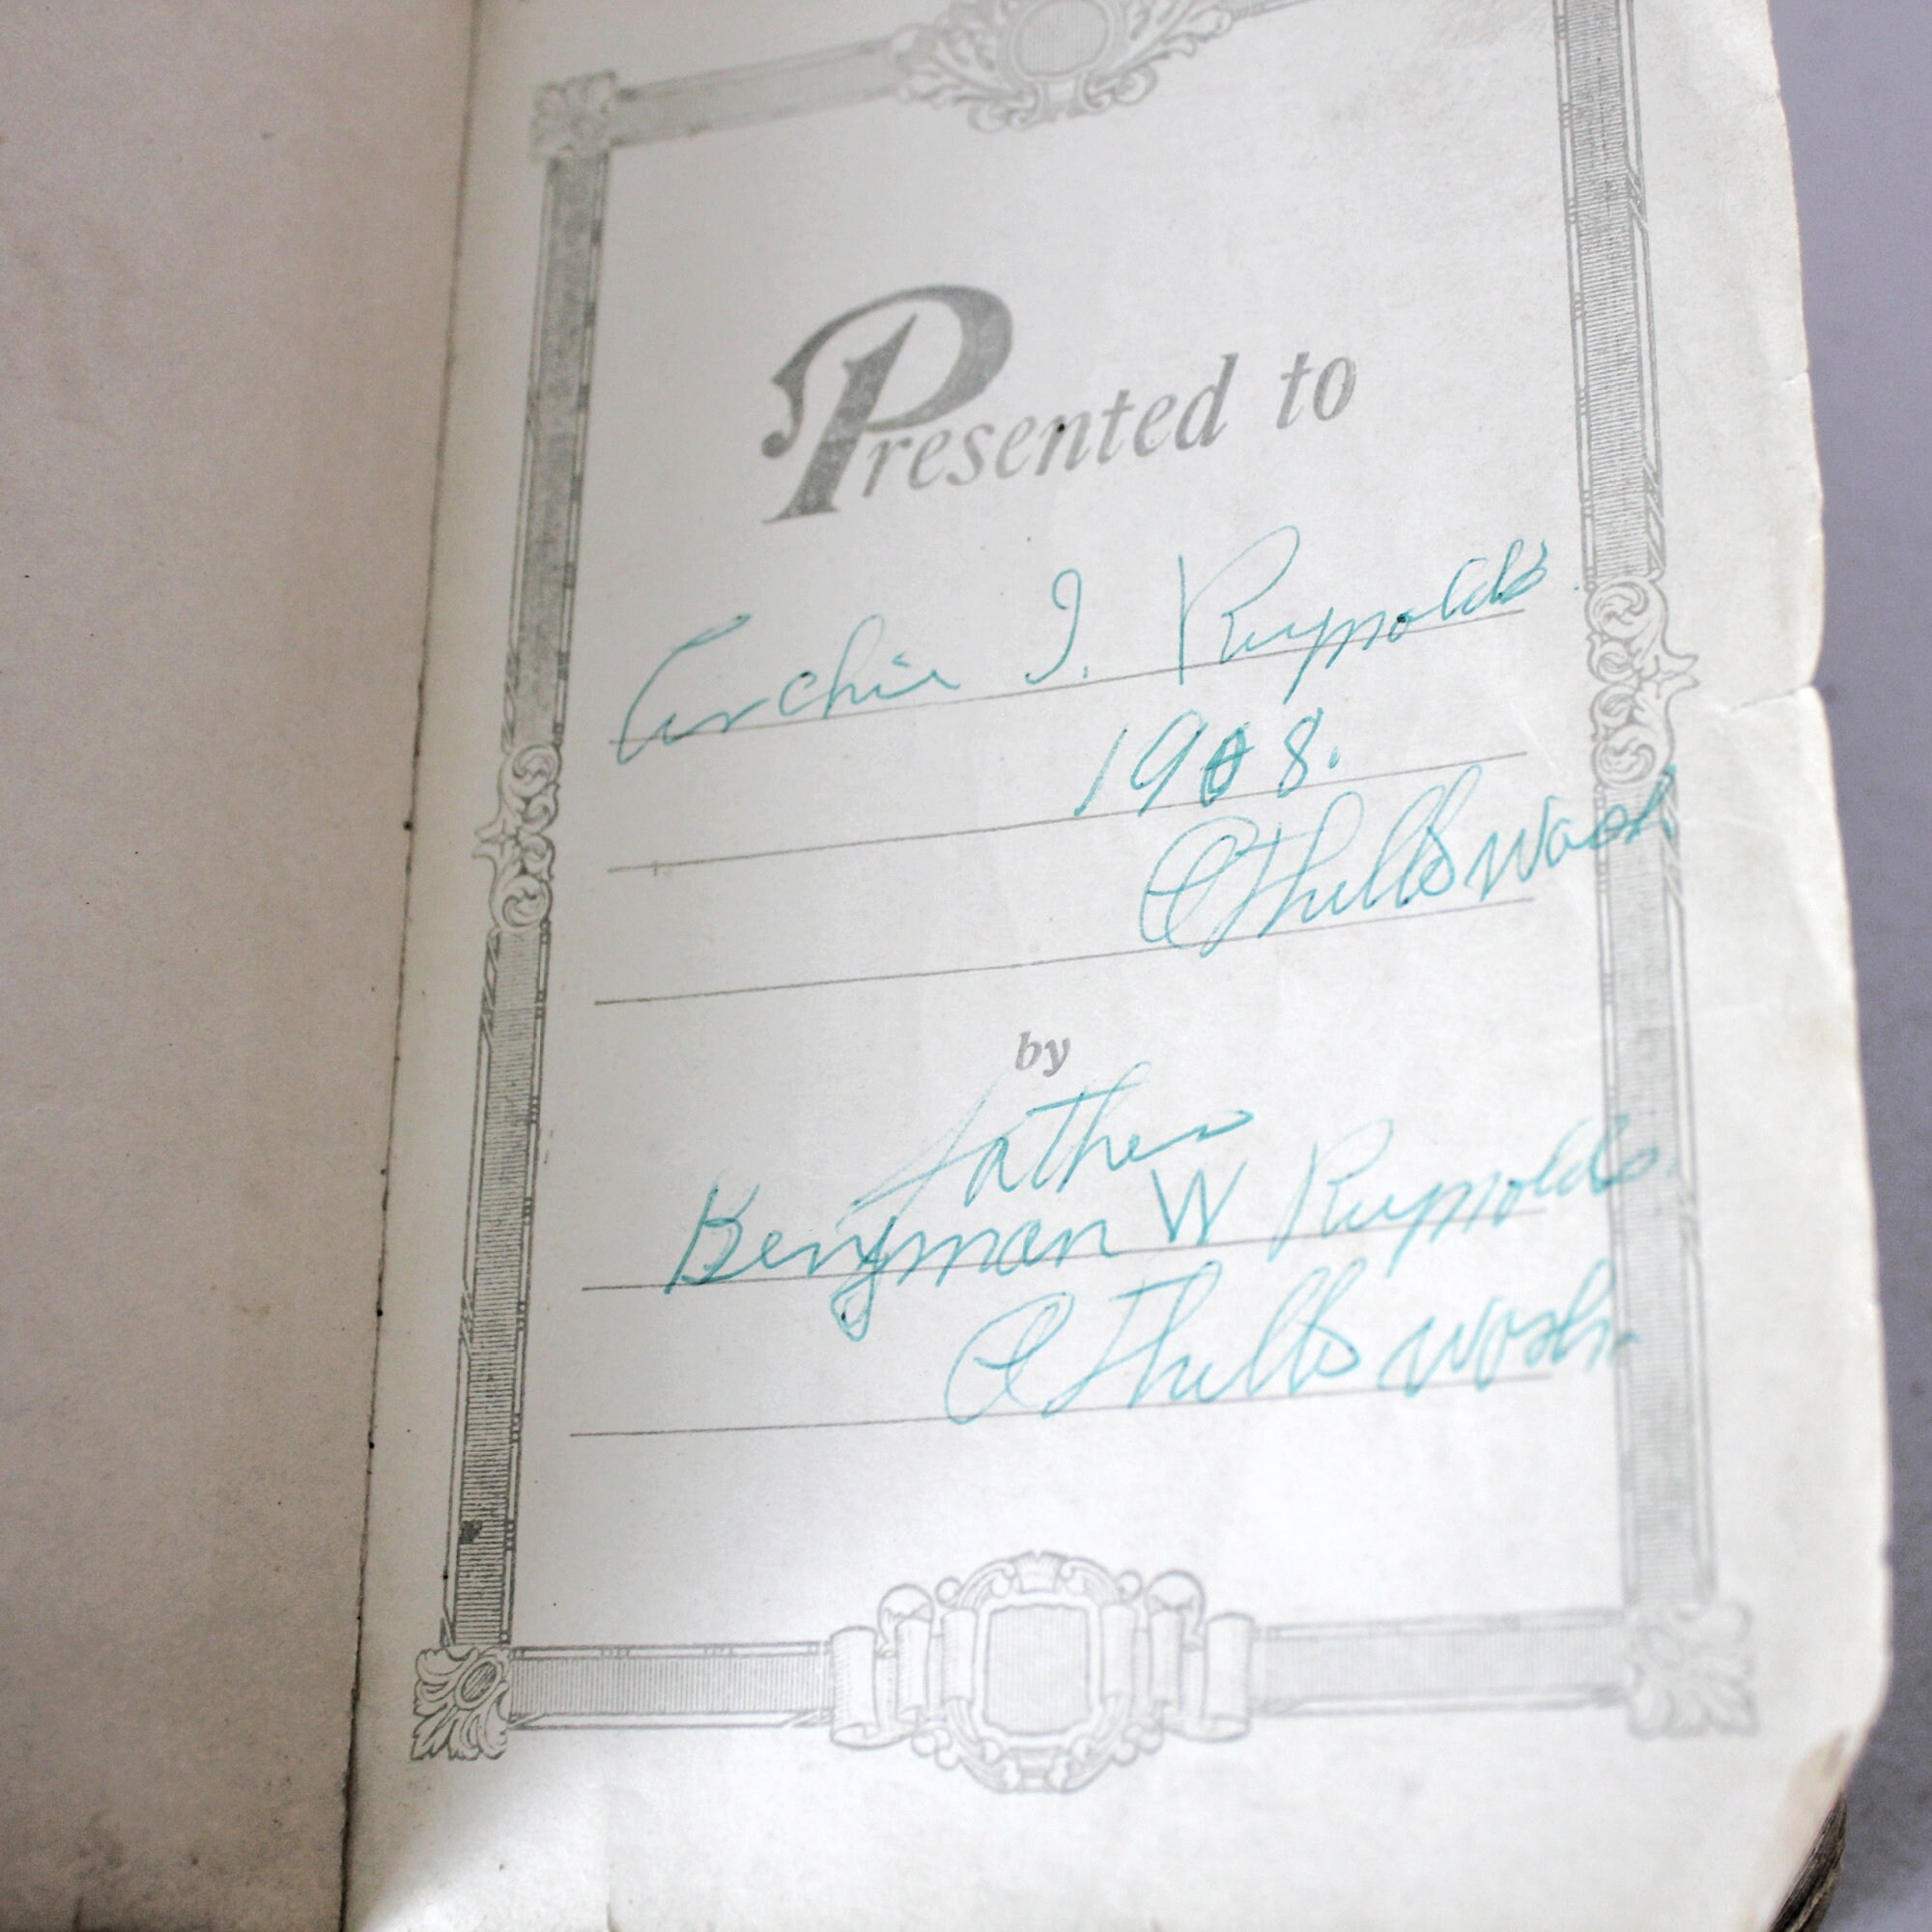 Presented to
Archie I. Reynolds
1908.
Othello Wash
by
father
Benjman W Reynolds
Othello Wash.